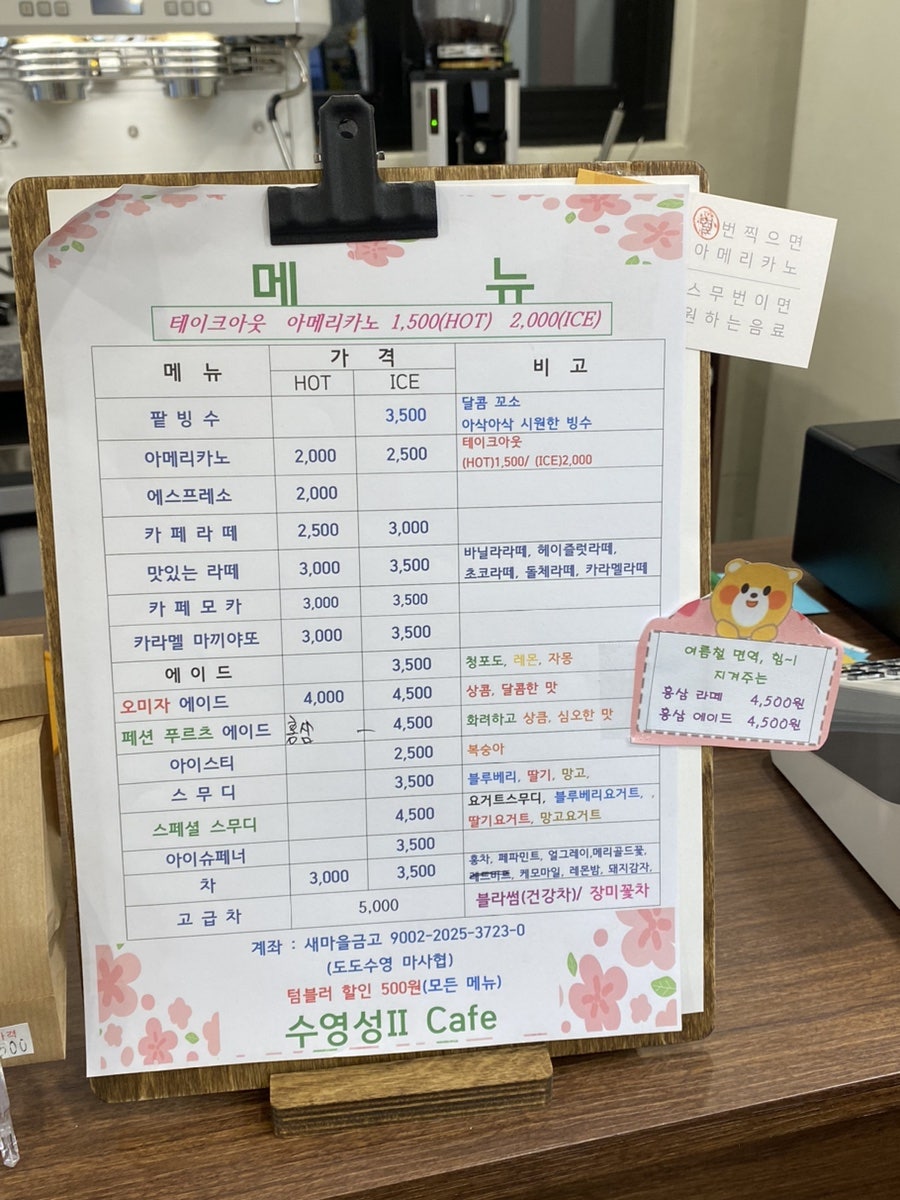 메 뉴
테이크아웃 아메리카노 1,500(HOT) 2,000(ICE)
메 뉴 가 격 비 고
HOT ICE
팥 빙 수 3,500 달콤 꼬소
아삭아삭 시원한 빙수
아메리카노 2,000 2,500 테이크아웃
(HOT)1,500/ (ICE)2,000
에스프레소 2,000
카 페 라 떼 2,500 3,000
맛있는 라떼 3,000 3,500 바닐라라떼, 헤이즐럿라떼,
초코라떼, 돌체라떼, 카라멜라떼
카 페 모 카 3,000 3,500
카라멜 마끼야또 3,000 3,500
에 이 드 3,500 청포도, 레몬, 자몽
오미자 에이드 4,000 4,500 상콤, 달콤한 맛
페션 푸르츠 에이드 품절 4,500 화려하고 상콤, 심오한 맛
아이스티 2,500 복숭아
스 무 디 3,500 블루베리, 딸기, 망고,
스페셜 스무디 4,500 요거트스무디, 블루베리요거트,
딸기요거트, 망고요거트
아이슈페너 3,500
차 3,000 3,500 홍차, 페파민트, 얼그레이,메리골드꽃,
레드비트, 케모마일, 레몬밤, 돼지감자,
고 급 차 5,000 블라썸(건강차)/ 장미꽃차
계좌 : 새마을금고 9002-2025-3723-0
(도도수영 마사협)
텀블러 할인 500원(모든 메뉴)
수영성II Cafe
번 찍 으 면
아 메 리 카 노
스 무 번 이 면
원 하 는 음 료
여름철 면역, 힘~!
지켜주는
홍삼 라떼 4,500원
홍삼 에이드 4,500원